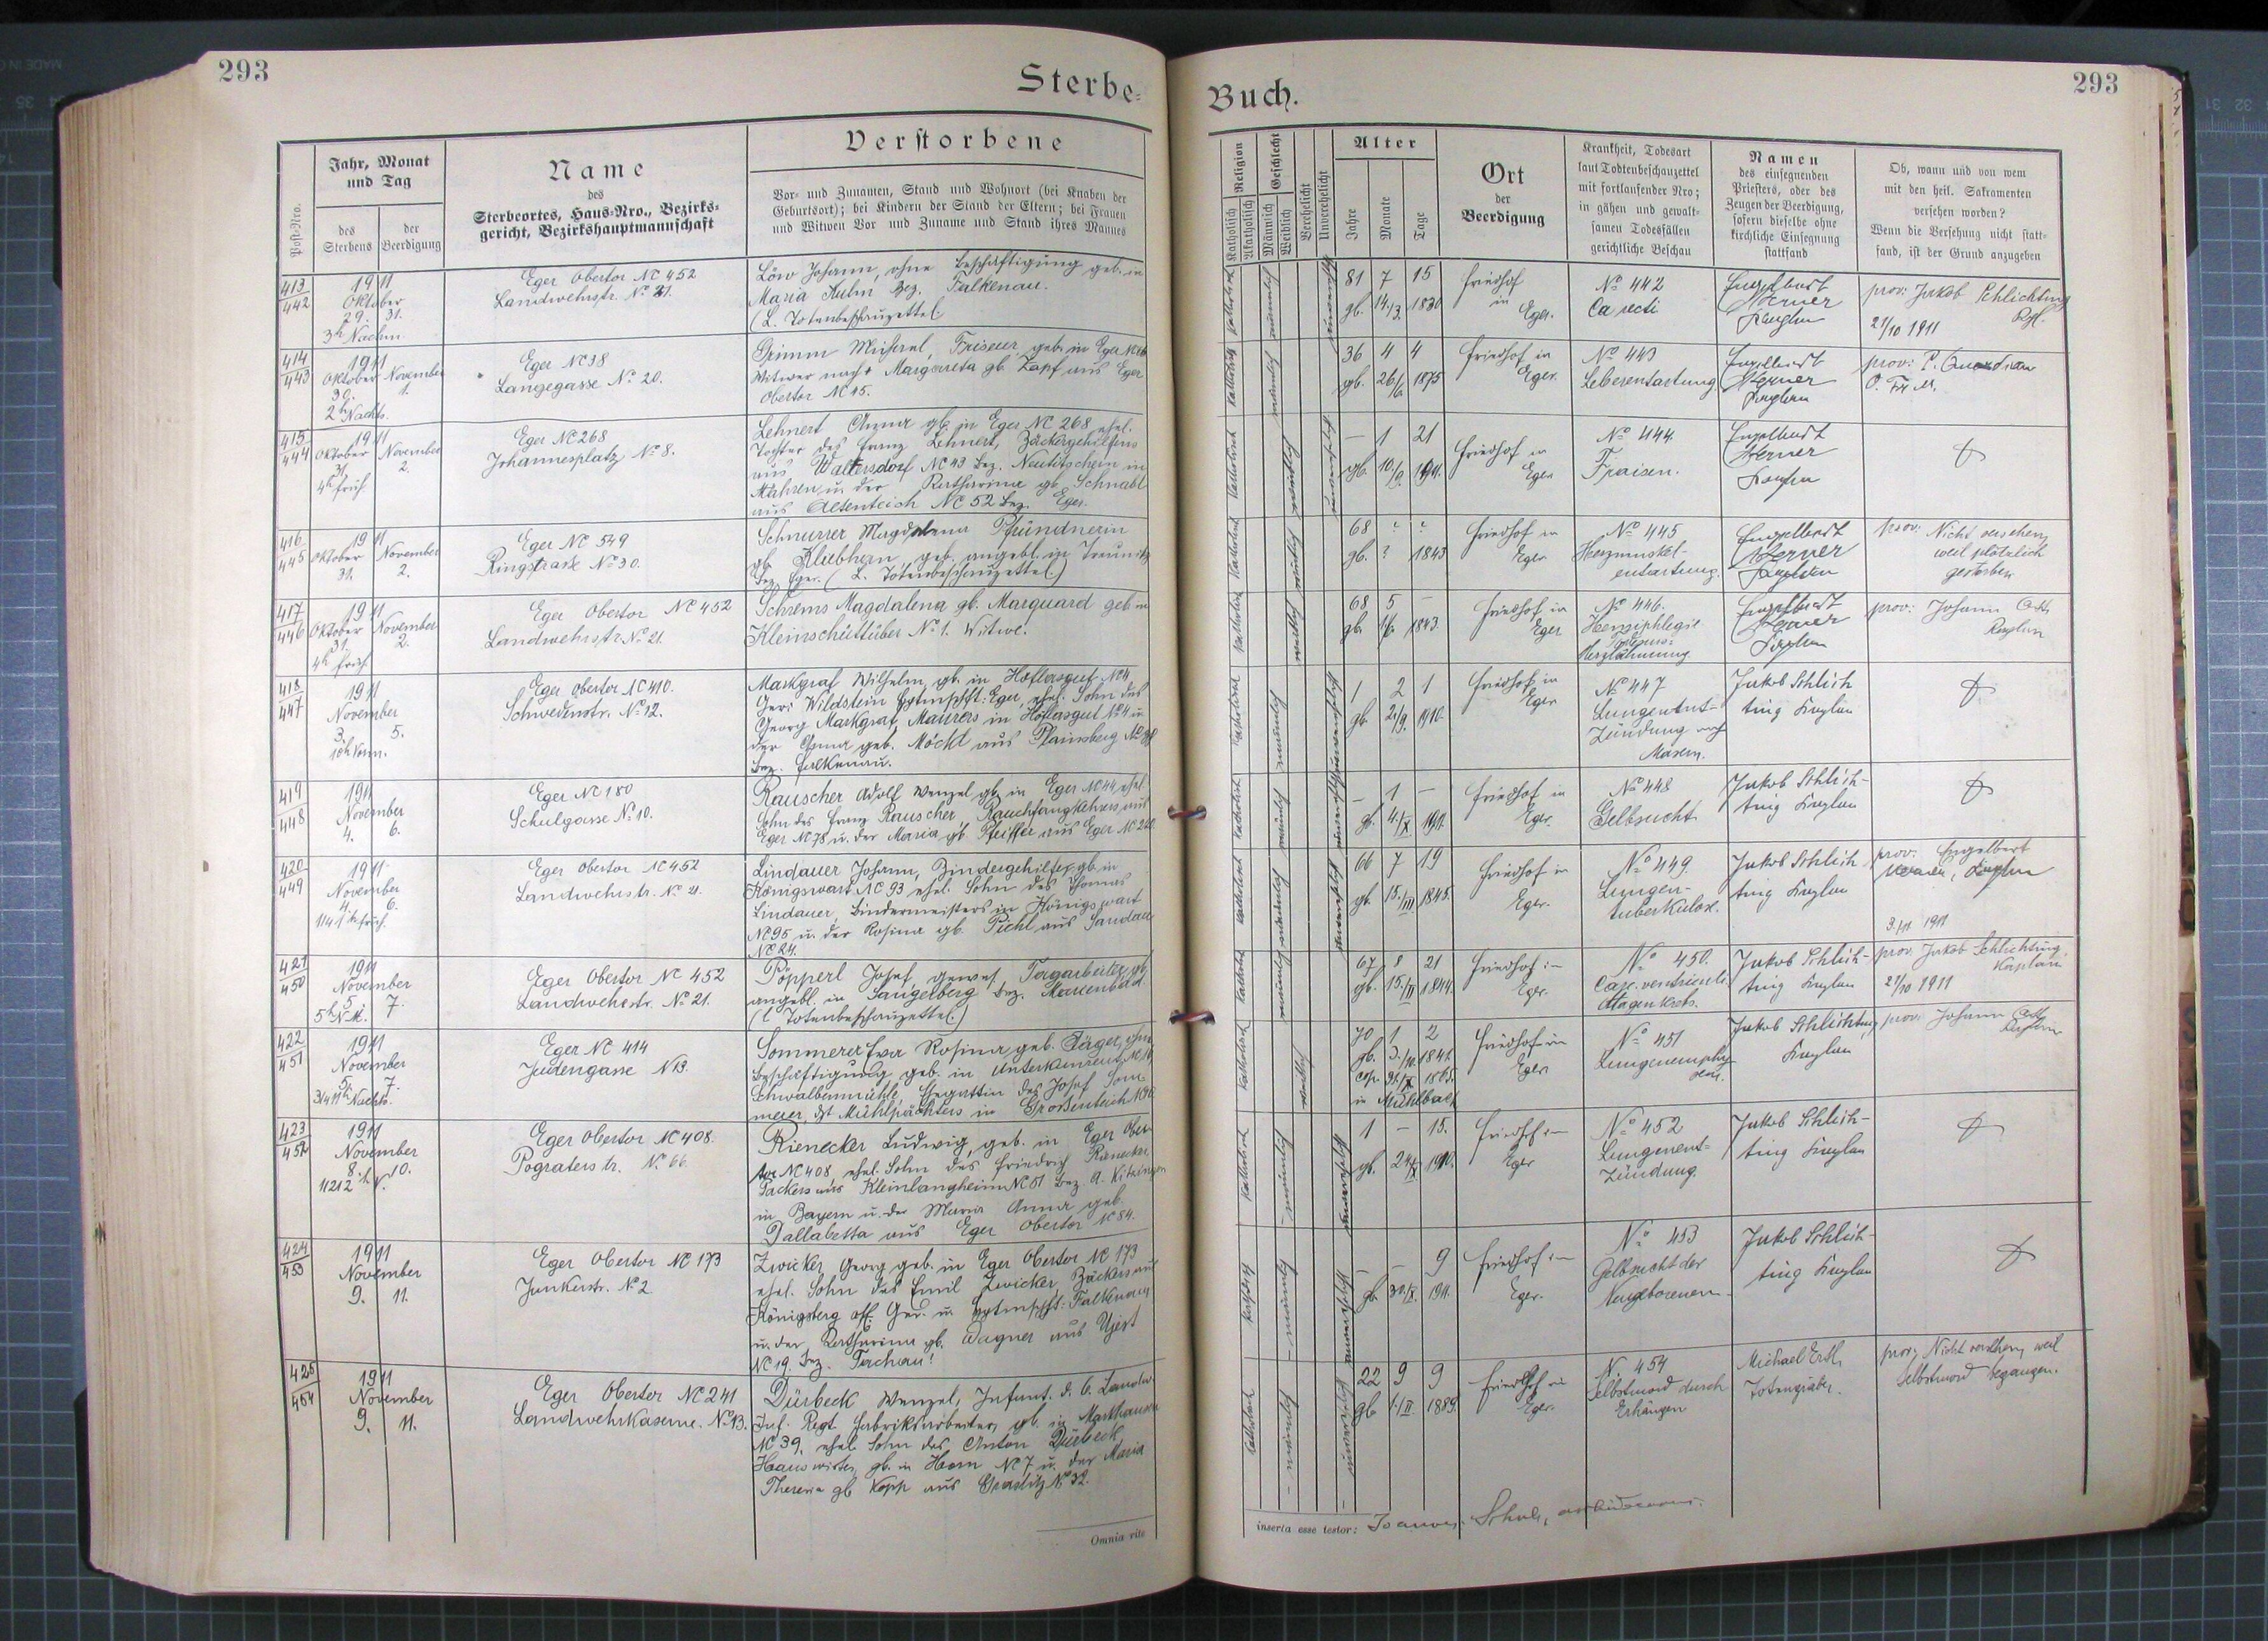 293
Sterbe-
Buch.
293
Post-Nro.
Jahr, Monat
und Tag
des
Sterbens
der
Beerdigung
Name
des
Sterbeortes, Haus-Nro., Bezirks-
gericht, Bezirkshauptmannschaft
Verstorbene
Vor- und Zunamen, Stand und Wohnort (bei Knaben der
Geburtsort); bei Kindern der Stand der Eltern; bei Frauen
und Witwen Vor und Zuname und Stand ihres Mannes
Religion
Katholisch
Akatholisch
Geschlecht
Männlich
Weiblich
Verehelicht
Unverehelicht
Alter
Jahre
Monate
Tage
Ort
der
Beerdigung
Krankheit, Todesart
laut Todtenbeschauzettel
mit fortlaufender Nro;
in gähen und gewalt-
samen Todesfällen
gerichtliche Beschau
Namen
des einsegnenden
Priesters, oder des
Zeugen der Beerdigung,
sofern dieselbe ohne
kirchliche Einsegnung
stattfand
Ob, wann und von wem
mit den heil. Sakramenten
versehen worden?
Wenn die Versehung nicht statt-
fand, ist der Grund anzugeben
413
442
1911
Oktober
29. 31.
3h Nachm.
Eger Obertor NC 452
Landwehrstr. No 21.
Löw Johann, ohne Beschäftigung geb. in
Maria Kulm Bez. Falkenau.
(L. Totenbeschauzettel)
81 7 15
gb. 14./3. 1830
Friedhof
in
Eger.
No 442
Ca recti
Engelbert
Werner
Kaplan
prov: Jakob Schlichting
21/10 1911
414
443
1911
Oktober November
30. 1.
2h Nachts.
Eger NC 38
Langegasse No 20.
Grimm Michael, Friseur, geb. in Eger
Witwer nach Margareta gb. Zapf aus Eger
Obertor NC 15.
36 4 4
gb. 26./6. 1875
Friedhof in
Eger.
No 443
Leberentartung
Engelbert
Werner
Kaplan
prov: P. Guardian
O. Fr. M.
415
444
1911
Oktober November
31. 2.
4h früh.
Eger NC 268
Johannesplatz No 8.
Lehnert Anna gb. in Eger NC 268, ehel.
Tochter des Franz Lehnert, Bäckergehilfens
aus Waltersdorf NC 43 Bez. Neutitschein in
Mähren u. der Katharina gb. Schnabl
aus Altenteich NC 52 Bez. Eger.
– 1 21
gb. 10./9. 1911.
Friedhof in
Eger
No 444
Fraisen.
Engelbert
Werner
Kaplan
416
445
1911
Oktober November
31. 2.
Eger NC 549
Ringstraße No 30.
Schnurrer Magdalena Pfründnerin
gb. Klubhan, geb. angebl. in Treunitz
Bez. Eger. (L. Totenbeschauzettel)
68 ? ?
gb. ? 1843
Friedhof in
Eger
No 445
Herzmuskel-
entartung.
Engelbert
Werner
Kaplan
prov: Nicht versehen,
weil plötzlich
gestorben
417
446
1911
Oktober November
31. 2.
4h früh.
Eger Obertor NC 452
Landwehrstr. No 21.
Schrems Magdalena gb. Marquard geb. in
Kleinschüttüber No 1. Witwe.
68 5 –
gb. 1843.
Friedhof in
Eger
No 446.
Herzlähmung
Engelbert
Werner
Kaplan
prov: Johann
Kaplan
418
447
1911
November
3. 5.
10h Vorm.
Eger Obertor NC 410.
Schwedenstr. No 12.
Markgraf Wilhelm, gb. in Höflasgut NC 4
Ger: Wildstein Bez. Eger, ehel. Sohn des
Georg Markgraf, Maurers in Höflasgut No 4 u.
der Anna geb. Möckl aus
Bez. Falkenau.
1 2 1
gb. 2./9. 1910.
Friedhof in
Eger
No 447
Lungenent-
zündung nach
Masern.
Jakob Schlich
ting Kaplan
419
448
1911
November
4. 6.
Eger NC 180
Schulgasse No 10.
Rauscher Adolf Wenzel gb. in Eger NC 44, ehel.
Sohn des Franz Rauscher, Rauchfangkehrers aus
Eger NC 78 u. der Maria gb. Pfeiffer aus Eger NC
– 1 –
gb. 4./X. 1911.
Friedhof in
Eger.
No 448
Gelbsucht
Jakob Schlich-
ting Kaplan
420
449
1911
November
4. 6.
Eger Obertor NC 452
Landwehrstr. No 21.
Lindauer Johann, Bindergehilfe, gb. in
Königswart NC 93 ehel. Sohn des Thomas
Lindauer, Bindermeisters in Königswart
NC 95 u. der Rosina gb. Pichl aus Sandau
NC 24.
66 7 19
gb. 15./III. 1845.
Friedhof in
Eger.
No 449.
Lungen-
tuberkulose.
Jakob Schlich
ting Kaplan
prov: Engelbert
Werner, Kaplan
3./11 1911
421
450
1911
November
5. 7.
5h N.M.
Eger Obertor NC 452
Landwehrstr. No 21.
Popperl Josef, gewes. Tagarbeiter, gb.
angebl. in Sangerberg Bez. Marienbad
(l. Totenbeschauzettel.)
67 8 21
gb. 15./II 1844.
Friedhof in
Eger.
No 450.
Carc. ventriculi
Magenkrebs.
Jakob Schlich-
ting Kaplan
prov: Jakob Schlichting
Kaplan
27/10 1911
422
451
1911
November
5. 7.
3/4 11h Nachts.
Eger NC 414
Judengasse No 13.
Sommerer Eva Rosina, geb. Jäger, ohne
Beschäftigung geb. in Unterkunreut NC
Schwalbenmühle, Ehegattin des Josef Som
merer, Mühlpächters in Großenteich
70 1 2
gb. 3./10. 1841.
cop. 1865.
in Mühlbach
Friedhof in
Eger
No 451
Lungenemphy-
sem.
Jakob Schlichting
Kaplan
prov: Johann
Kaplan
423
452
1911
November
8. 10.
Eger Obertor NC 408.
Pograterstr. No 66.
Rienecker Ludwig, geb. in Eger Ober-
tor NC 408, ehel. Sohn des Friedrich Rienecker
Bäckers aus Kleinlangheim NC 51 Bez. A. Kitzingen
in Bayern u. der Maria Anna geb.
Dallabetta aus Eger Obertor NC 84.
1 – 15.
gb. 24. 1910.
Friedhof in
Eger
No 452
Lungenent-
zündung.
Jakob Schlich-
ting Kaplan
424
453
1911
November
9. 11.
Eger Obertor NC 173
Junkerstr. No 2.
Zwicker Georg geb. in Eger Obertor NC 173
ehel. Sohn des Emil Zwicker, Bäckers aus
Königsberg Falkenau
u. der Katharina gb. Wagner aus
NC 19. Bez. Tachau!
– – 9
gb. 30./X. 1911.
Friedhof in
Eger.
No 453
Gelbsucht der
Neugeborenen
Jakob Schlich-
ting Kaplan
425
454
1911
November
9. 11.
Eger Obertor NC 241
Landwehrkaserne. No 13.
Dürbeck Wenzel, Infant. d. 6. Landw.
Inf. Regt. Fabriksarbeiter, gb. in Markhausen
NC 39, ehel. Sohn des Anton Dürbeck
Hauswirtes, gb. in Horn NC 7 u. der Maria
Theresia gb. Kopp aus Graslitz No 32.
22 9 9
gb. 1./II. 1889.
Friedhof in
Eger.
No 454
Selbstmord durch
Erhängen
Michael Ertl,
Totengräber.
prov: Nicht versehen, weil
Selbstmord begangen.
Omnia rite
inserta esse testor: